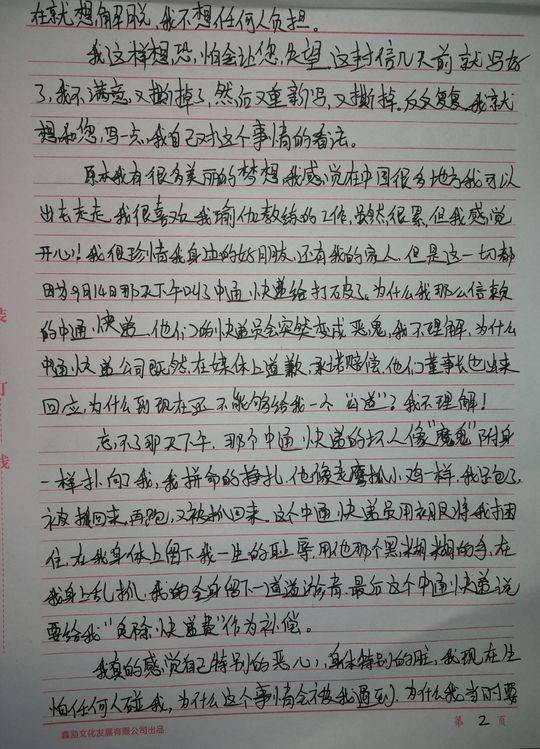 在就想解脱,我不想任何人负担。
我这样想恐,怕会让您,失望,这封信几天前就写好
了,我不满意,又撕掉了,然后又重新写,又撕掉。反反复复,我就
想和您,写一点,我自己对这个事情的看法。
原本我有很多美丽的梦想,我感觉在中国很多地方我可以
出去走走,我很喜欢我瑜伽教练的工作,虽然很累,但我感觉
开心!我很珍惜我身边的好朋友,还有我的家人,但是这一切都
因为9月14日那天下午叫了中通,快递给打破了。为什么我那么信赖
的中通,快递,他们的快递员会突然变成恶鬼,我不理解,为什么
中通快递公司既然,在媒体上道歉,承诺赔偿,他们董事长也出来
回应,为什么到现在还不能够给我一个“公道”?我不理解!
忘不了那天下午,那个中通快递的坏人像“魔鬼”附身
一样扑向了我,我拼命的挣扎,他像老鹰抓小鸡一样,我跑了,
被抓回来,再跑,又被抓回来,这个中通快递员用衣服将我捆
住,在我身体上留下我一生的耻辱,用他那个黑糊糊的手,在
我身上乱抓,我的全身留下一道道淤青,最后这个中通快递说
要给我“免除快递费”作为补偿。
我真的感觉自己特别的恶心,身体特别的脏,我现在
怕任何人碰我,为什么这个事情会被我遇到,为什么我当时要
鑫勋文化发展有限公司出品
第 2 页
装
订
线